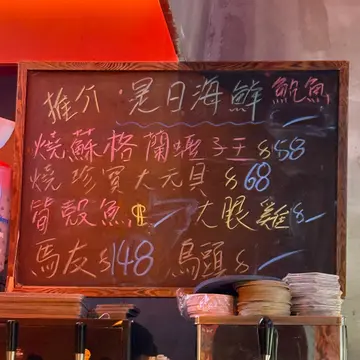 推介 · 是日海鮮 鮑魚
燒蘇格蘭蟶子王 $58
燒珍寶大元貝 $68
筍殼魚 $ 大眼雞 $
馬友 $148 烏頭 $